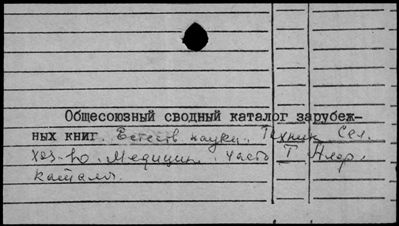 Общесоюзный сводный каталог зарубеж-
ных книг. Естеств. науки. Техника. Сел.
хоз-во. Медицина. часть
каталог.